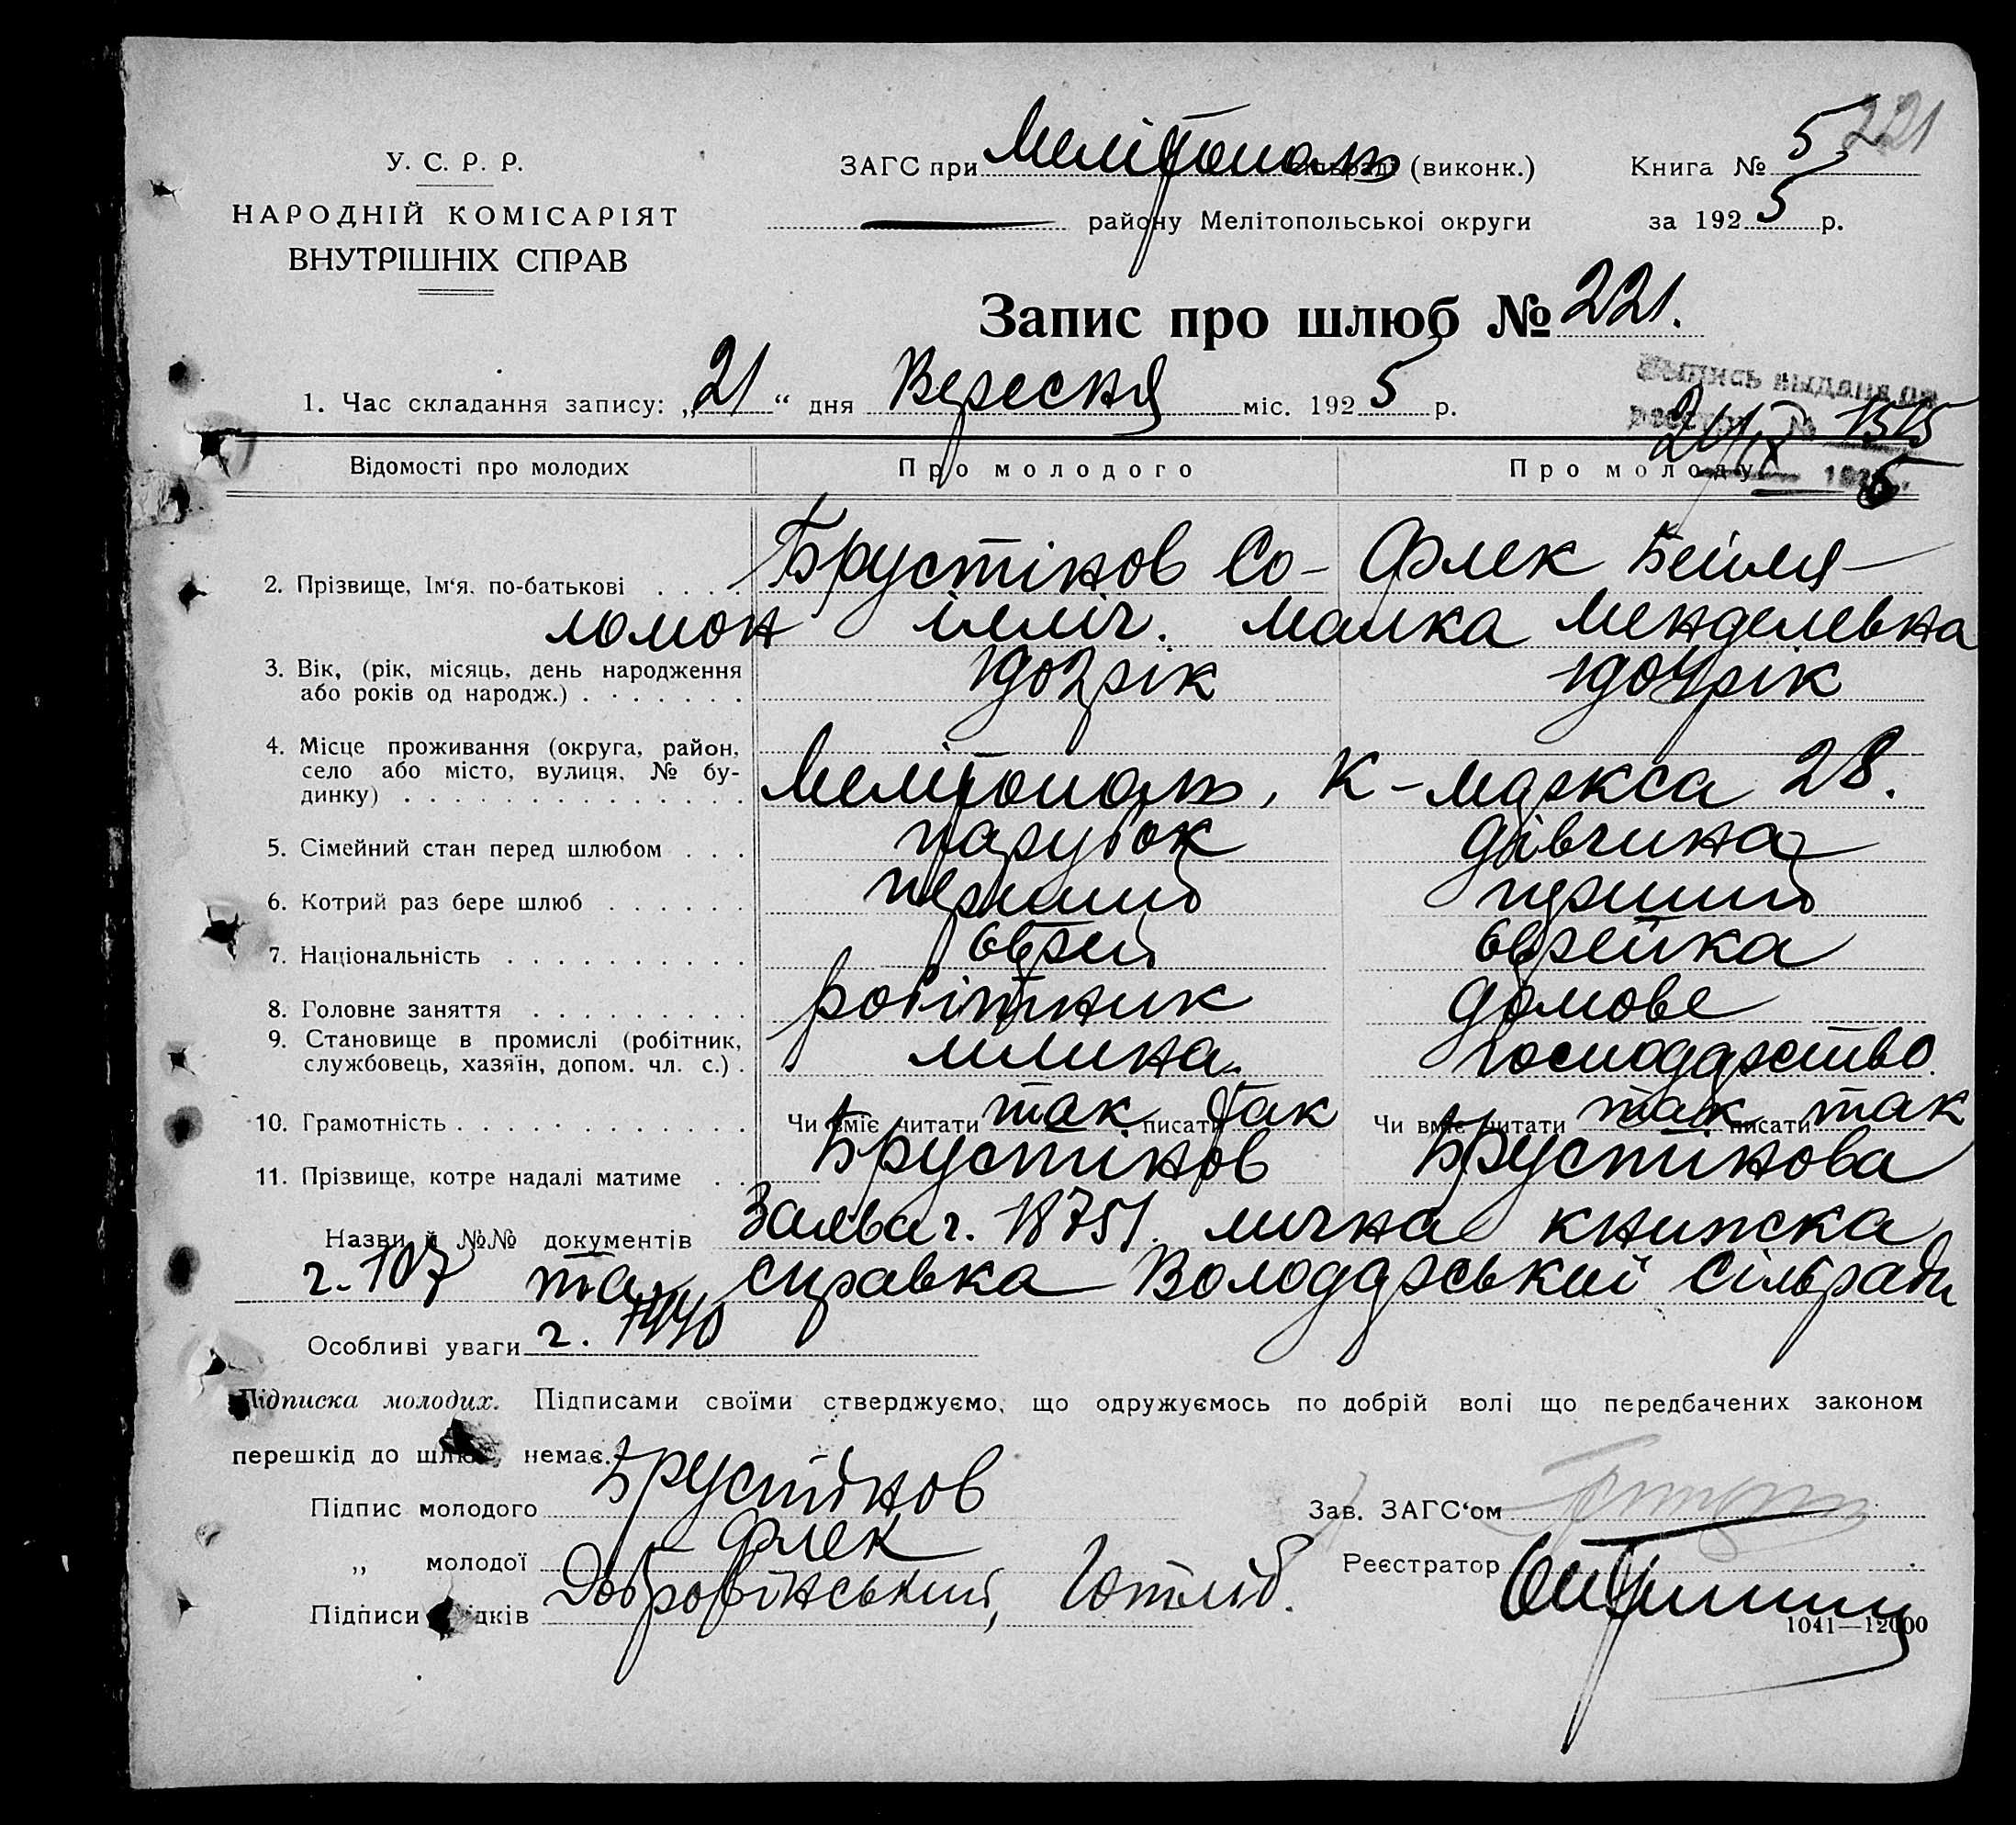 221
У. С. Р. Р.
НАРОДНІЙ КОМІСАРІЯТ
ВНУТРІШНІХ СПРАВ
ЗАГС при Мелітополь сільраді (виконк.)
району Мелітопольської округи
Книга № 5
за 1925 р.
Запис про шлюб № 221.
1. Час складання запису: „21“ дня Вересня міс. 1925 р.
Выпись выдана по
№ 1515
Відомості про молодих Про молодого Про молоду
2. Прізвище, Ім‘я, по-батькові . . . . Брустінов Со- Флек Бейля-
ломон ілліч. малка Менделевна
3. Вік, (рік, місяць, день народження
або років од народж.) . . . . . . . 1902 рік 1904 рік
4. Місце проживання (округа, район,
село або місто, вулиця, № бу-
динку) . . . . . . . . . . . . . . Мелітополь, К-маркса 28.
5. Сімейний стан перед шлюбом . . . парубок дівчина
6. Котрий раз бере шлюб . . . . . . перший перший
7. Національність . . . . . . . . . . . еврей еврейка
8. Головне заняття . . . . . . . . . робітник домове
9. Становище в промислі (робітник,
службовець, хазяїн, допом. чл. с.) . млина. господарство
10. Грамотність . . . . . . . . . . . . . Чи вміє читати так писати так Чи вміє читати так писати так
11. Прізвище, котре надалі матиме . . Брустінов Брустінова
Назви й №№ документів Заява ч. 18751. лична книжка
ч. 107 та справка Володарський Сільради
Особливі уваги ч.
Підписка молодих. Підписами своїми стверджуємо, що одружуємось по добрій волі що передбачених законом
перешкід до шлюбу немає.
Підпис молодого Брустінов
„ молодої Флек
Підписи свідків Добровінський, Готліб.
Зав. ЗАГС‘ом
Реєстратор
1041—12000